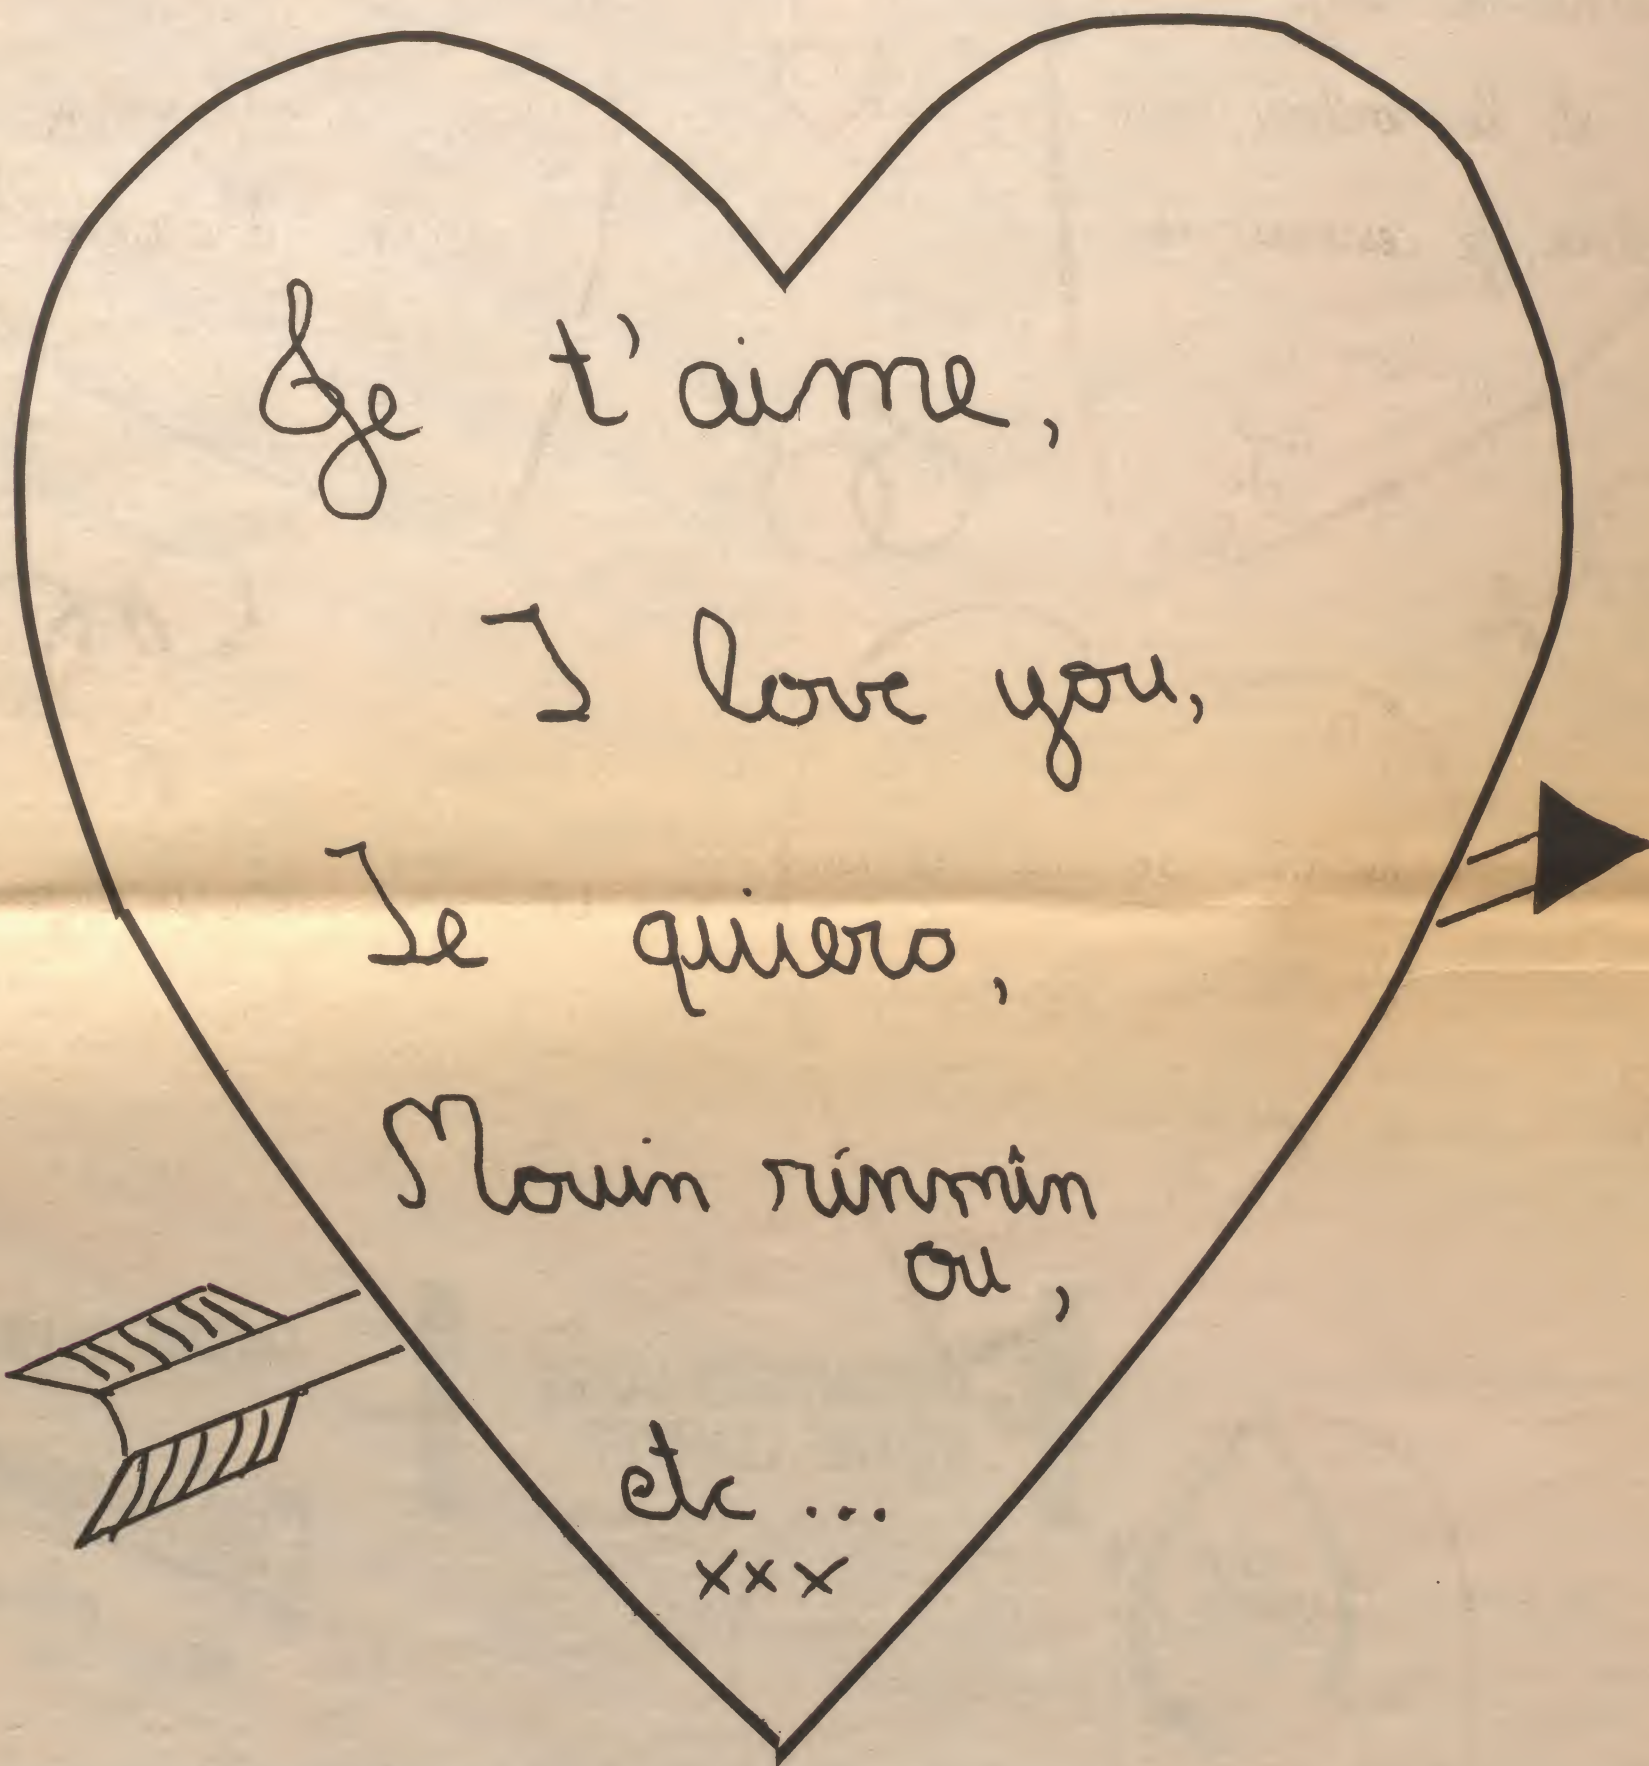 Je t'aime,
I love you,
Te quiero,
Mouin rinmin
ou,
etc...
xxx